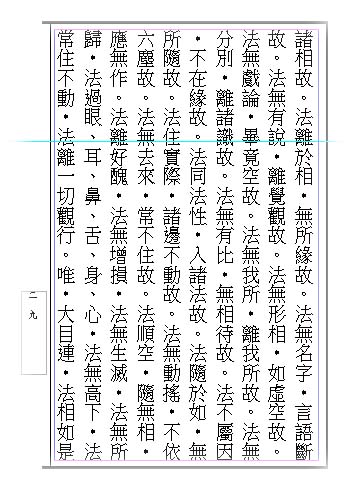 諸相故。法離於相・無所緣故。法無名字・言語斷
故。法無有說・離覺觀故。法無形相・如虛空故。
法無戲論・畢竟空故。法無我所・離我所故。法無
分別・離諸識故。法無有比・無相待故。法不屬因
・不在緣故。法同法性・入諸法故。法隨於如・無
所隨故。法住實際・諸邊不動故。法無動搖・不依
六塵故。法無去來・常不住故。法順空・隨無相・
應無作。法離好醜・法無增損・法無生滅・法無所
歸・法過眼、耳、鼻、舌、身、心・法無高下・法
常住不動・法離一切觀行。唯・大目連・法相如是
二九